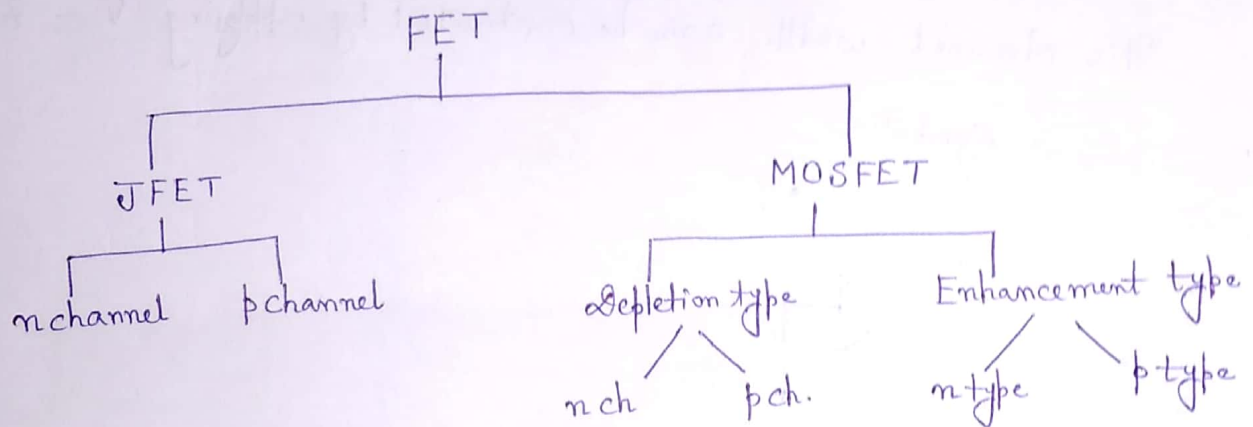 FET
JFET MOSFET
n channel p channel Depletion type Enhancement type
n ch p ch. n type p type